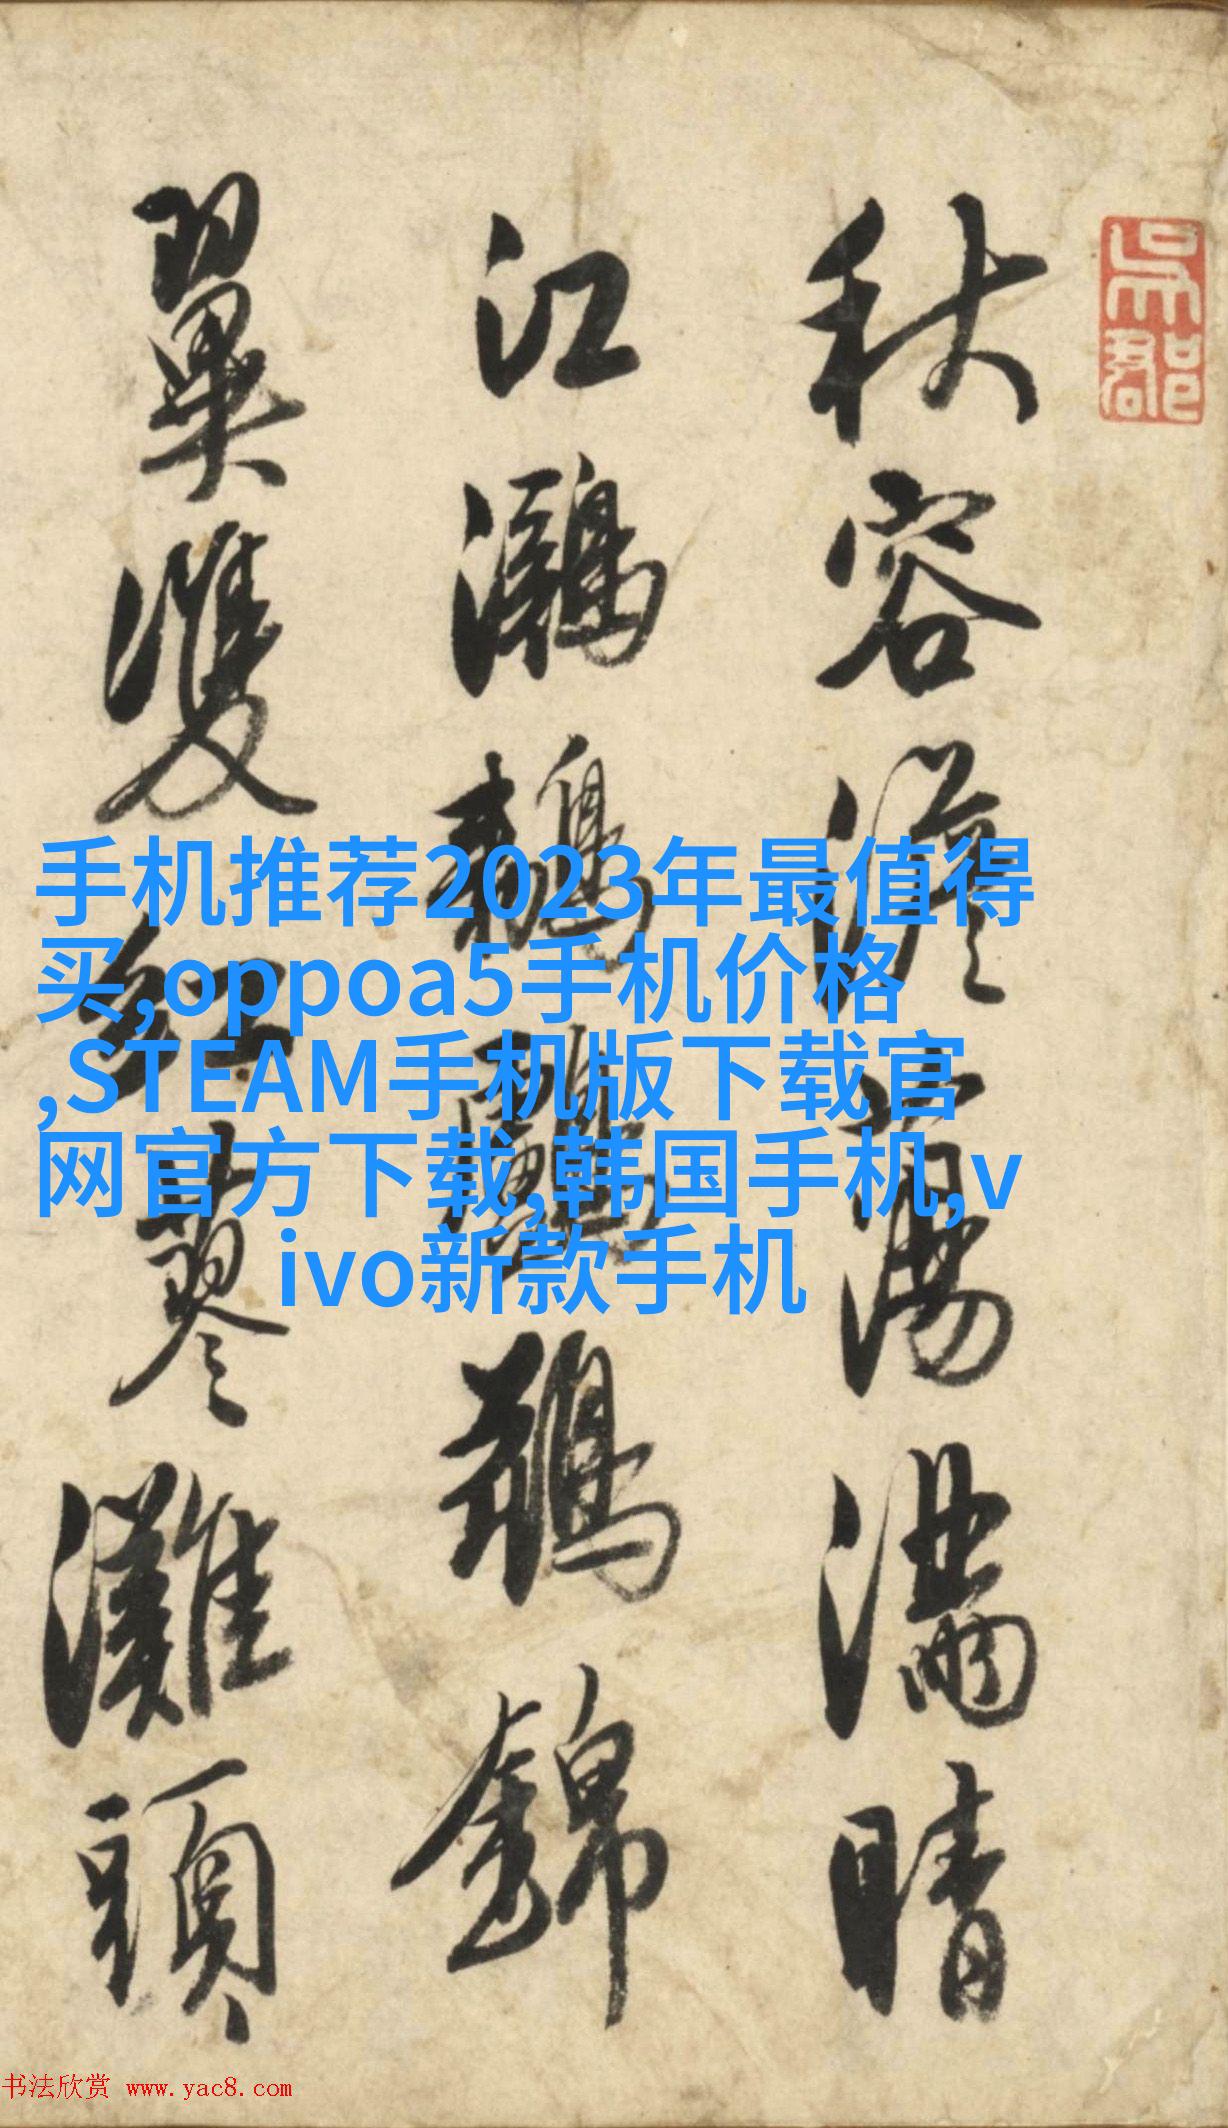 吳郡
秋容澹蕩滿晴
江鸂鶒鸕鷀錦
翼雙紅蓼灘頭
手机推荐2023年最值得
买,oppoa5手机价格
,STEAM手机版下载官
网官方下载,韩国手机,v
ivo新款手机
书法欣赏 www.yac8.com